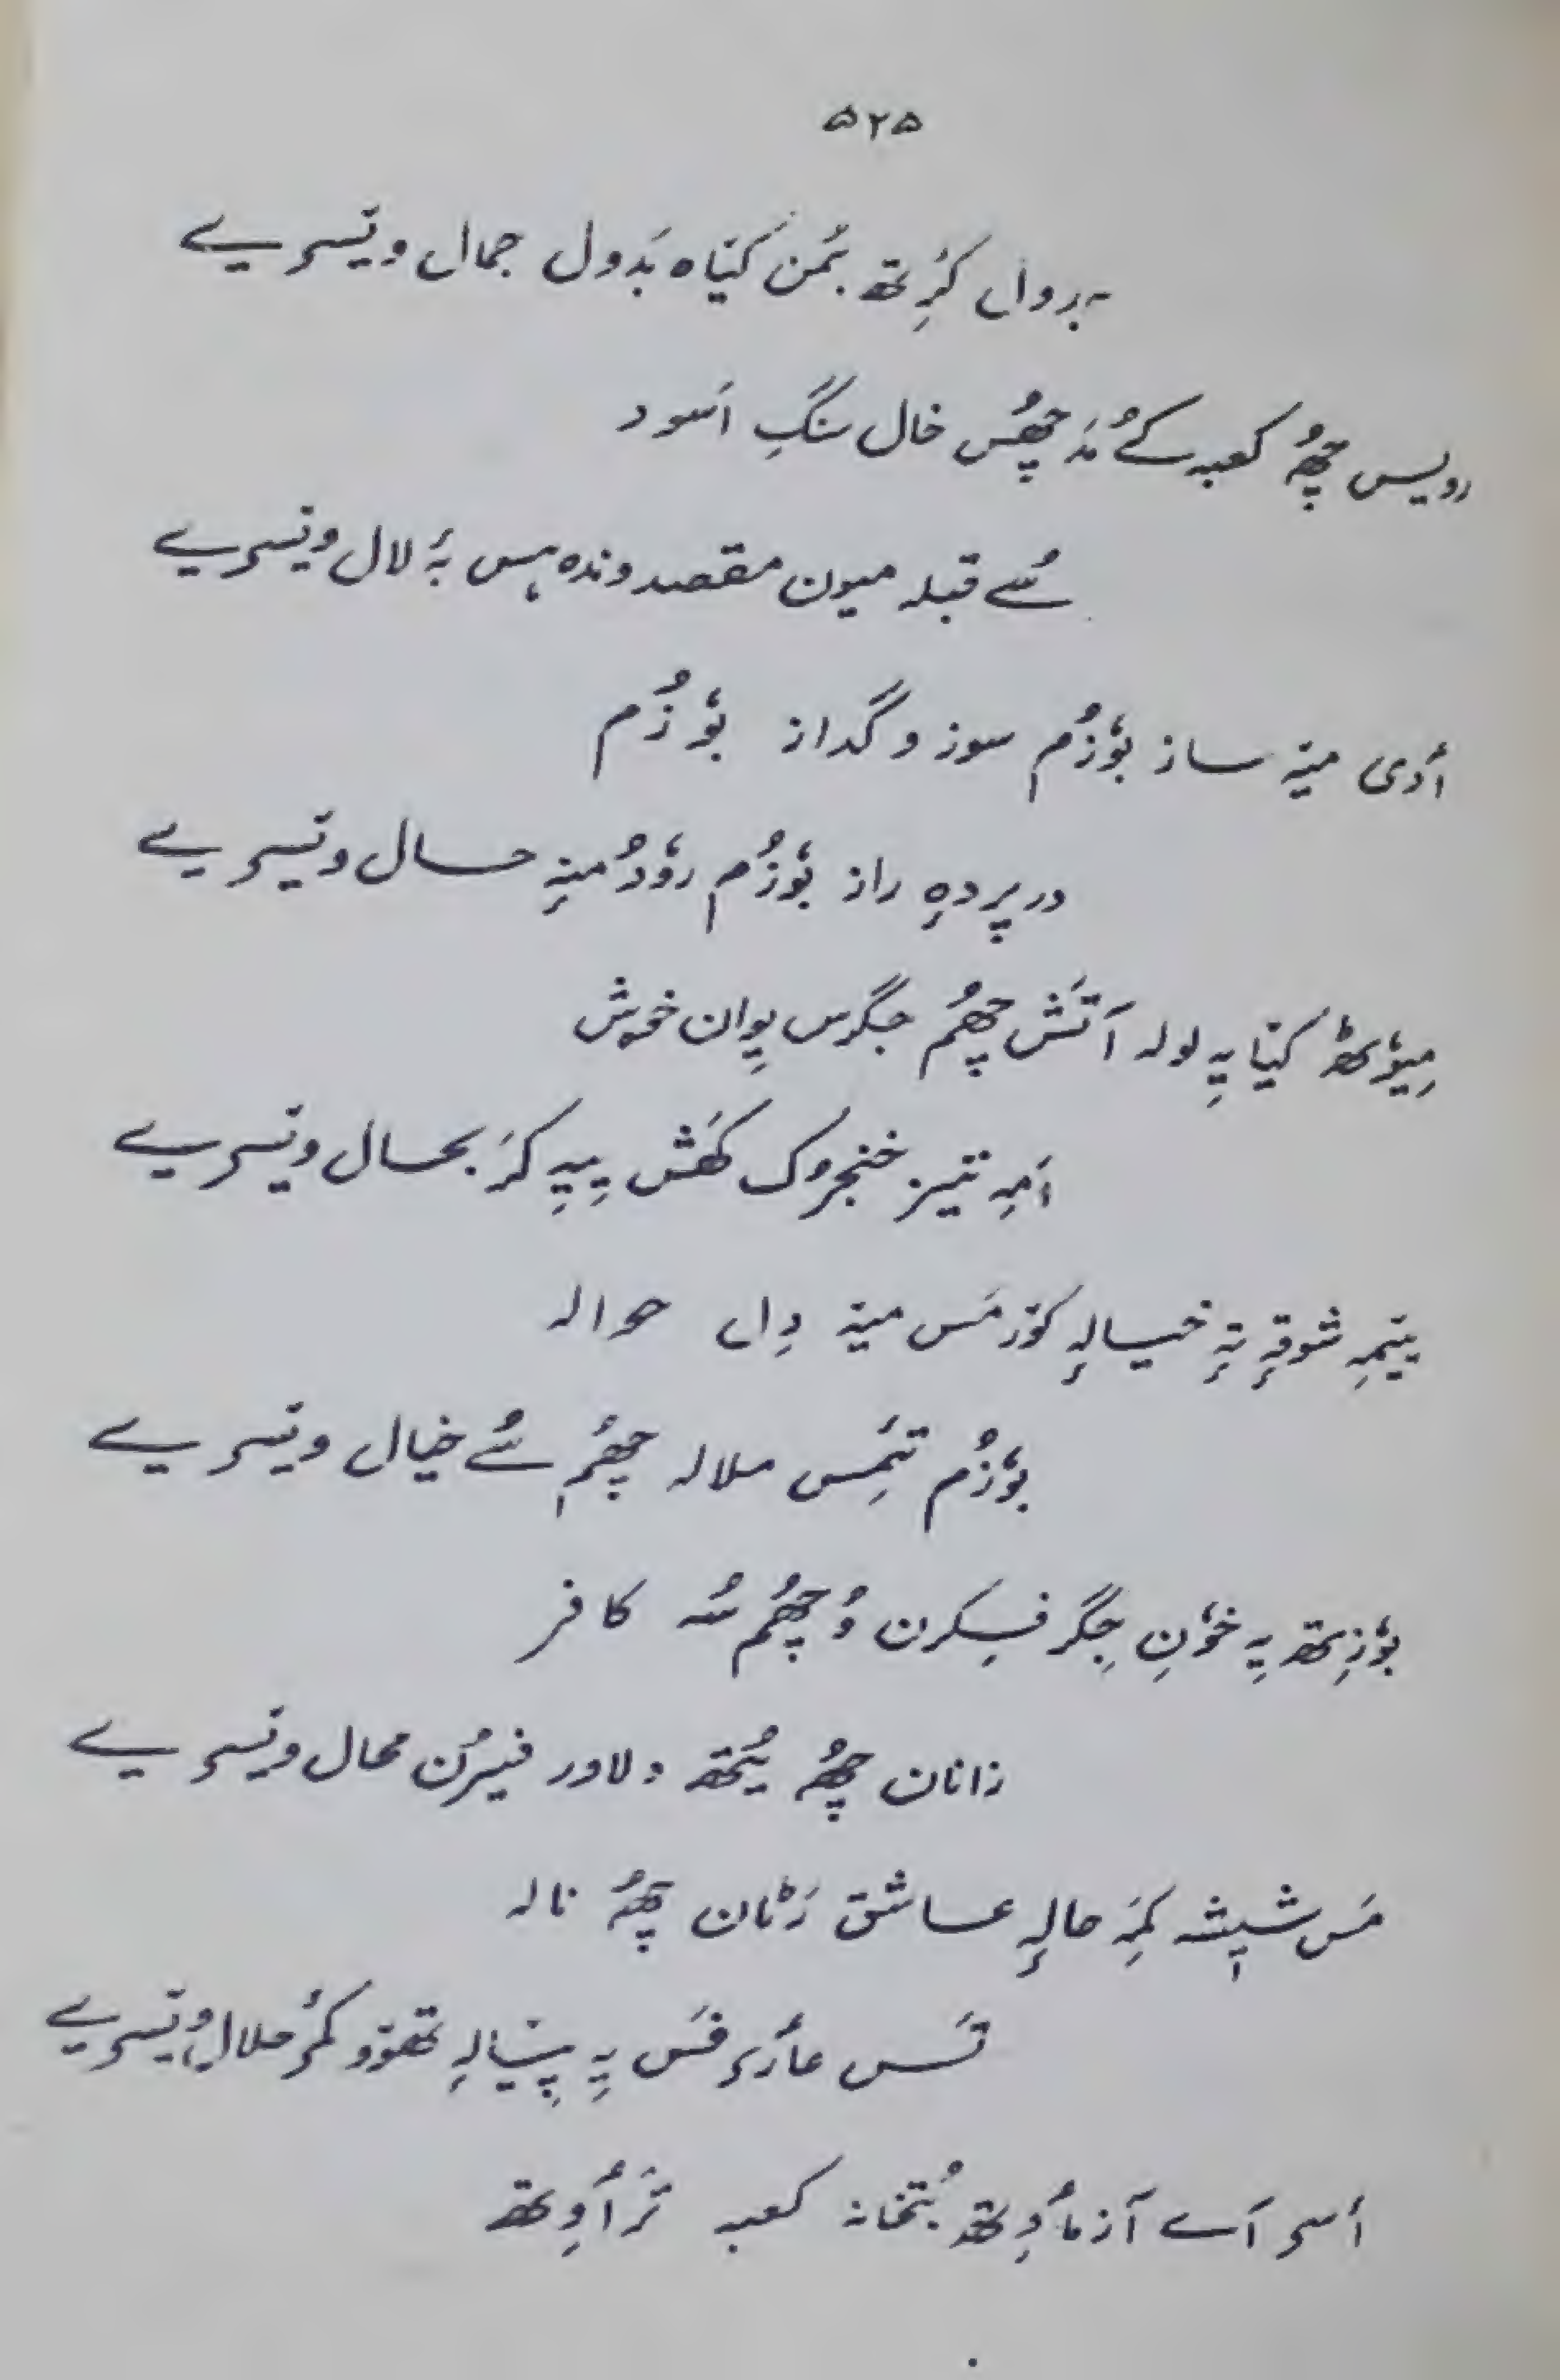 ۵۲۵
بدول کٔرِتھ بُمَن کیٛاہ بَدول جمال وۄتسریے
رویس چھُ کعبہ کے مُد چھُس خال سنگِ اَسود
سُے قبلہ میون مقصد وندہ ہس بہٕ لال وۄتسریے
أدی میٚہ ساز بوٗزُم سوز و گداز بوٗزُم
در پردہٕ راز بوٗزُم روٗدُ میٚہٕ حال وۄتسریے
مِیوٗٹھ کیٛا یہِ لولہ آتَش چھُم جگرس یِوان خوش
اَمہِ تیز خنجروک کَھش یِیہِ کرَ بحال وۄتسریے
یٚمہِ شوقہٕ تہٕ خیالہٕ کوٚرمَس میٚہ دِل حوالہ
بوٗزُم تٚمِس ملالہ چھُم سُے خیال وۄتسریے
بوٗزِتھ یہِ خوٗنِ جِگر فِکرن وُچھُم سُہ کافر
زانان چھُ یُتھ دلاور فیرُن محال وۄتسریے
مَس شیٖشہ کمہِ حالہٕ عاشق رَٹان چھُ نالہ
تَس عأرفَس یہِ پیٛالہِ تھوٚو کٔمۍ ملال وۄتسریے
أسۍ آے آزمأوِتھ بُتخانہ کعبہ ترٛأوِتھ